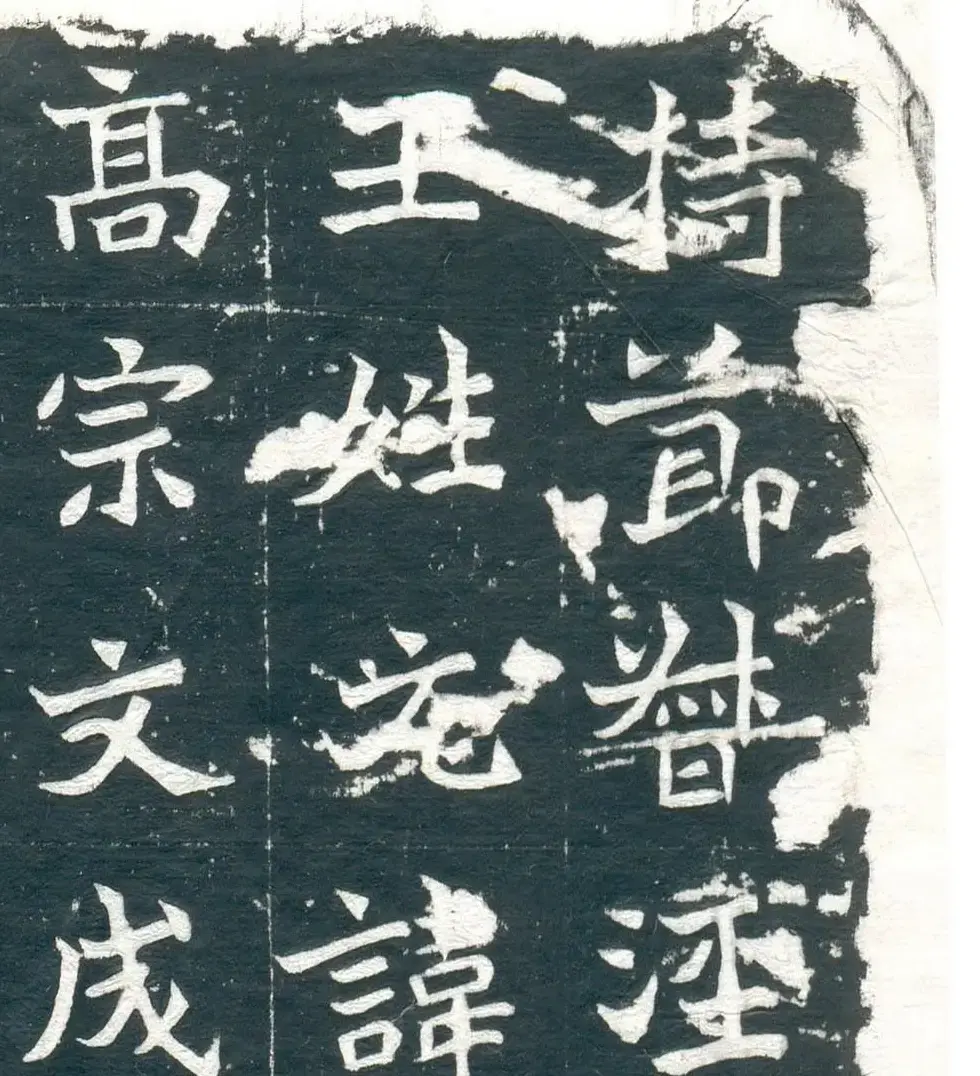 持節督涇
王姓元諱
高宗文成